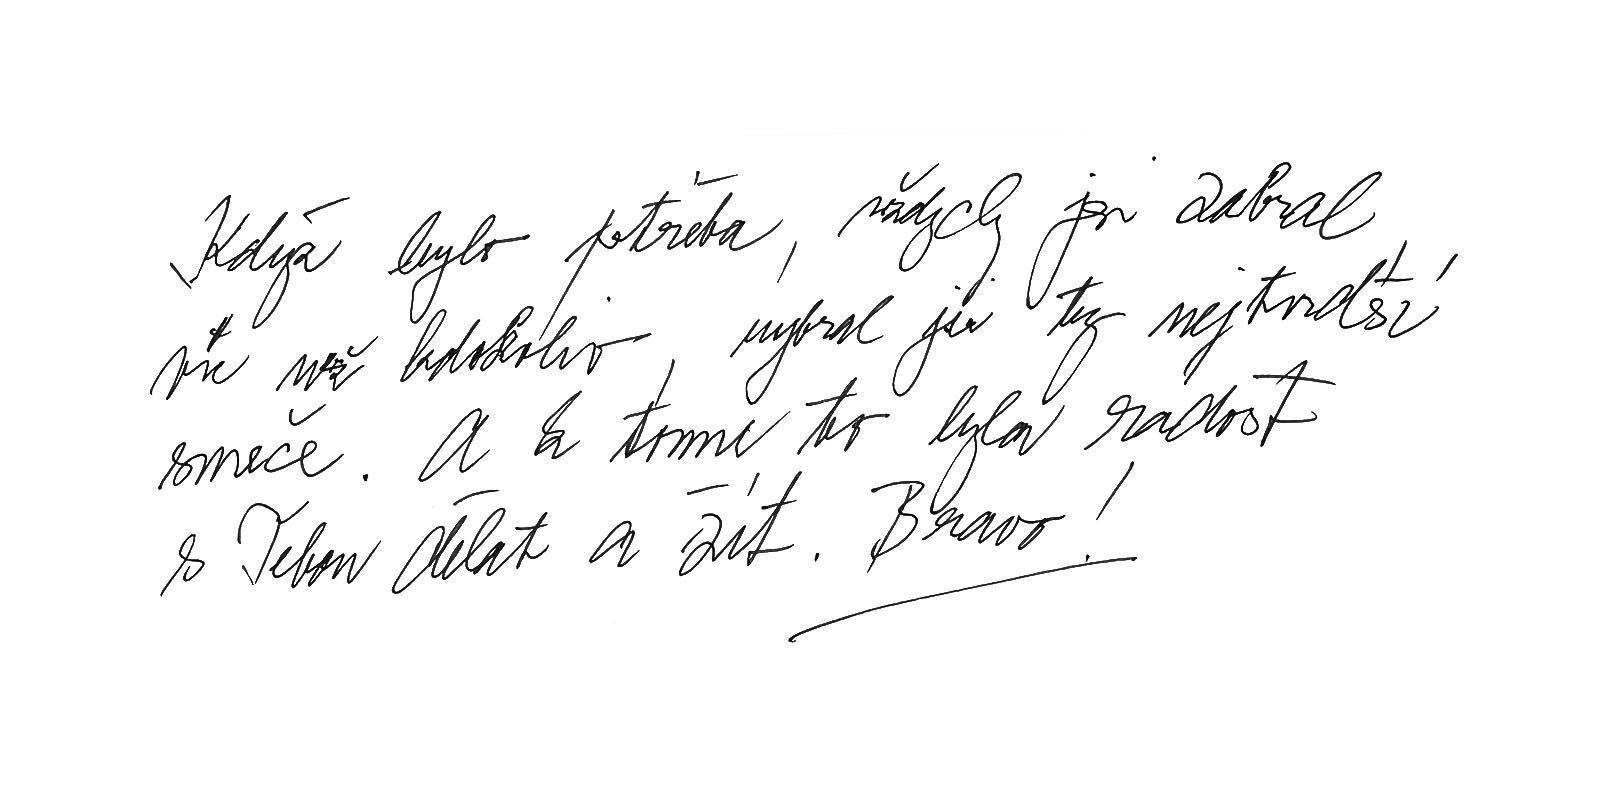 Když bylo potřeba, vždycky jsi zabral
víc než kdokoliv, vybral jsi ty nejtvrdší
smeče. A k tomu to byla radost
s Tebou dělat a žít. Bravo!